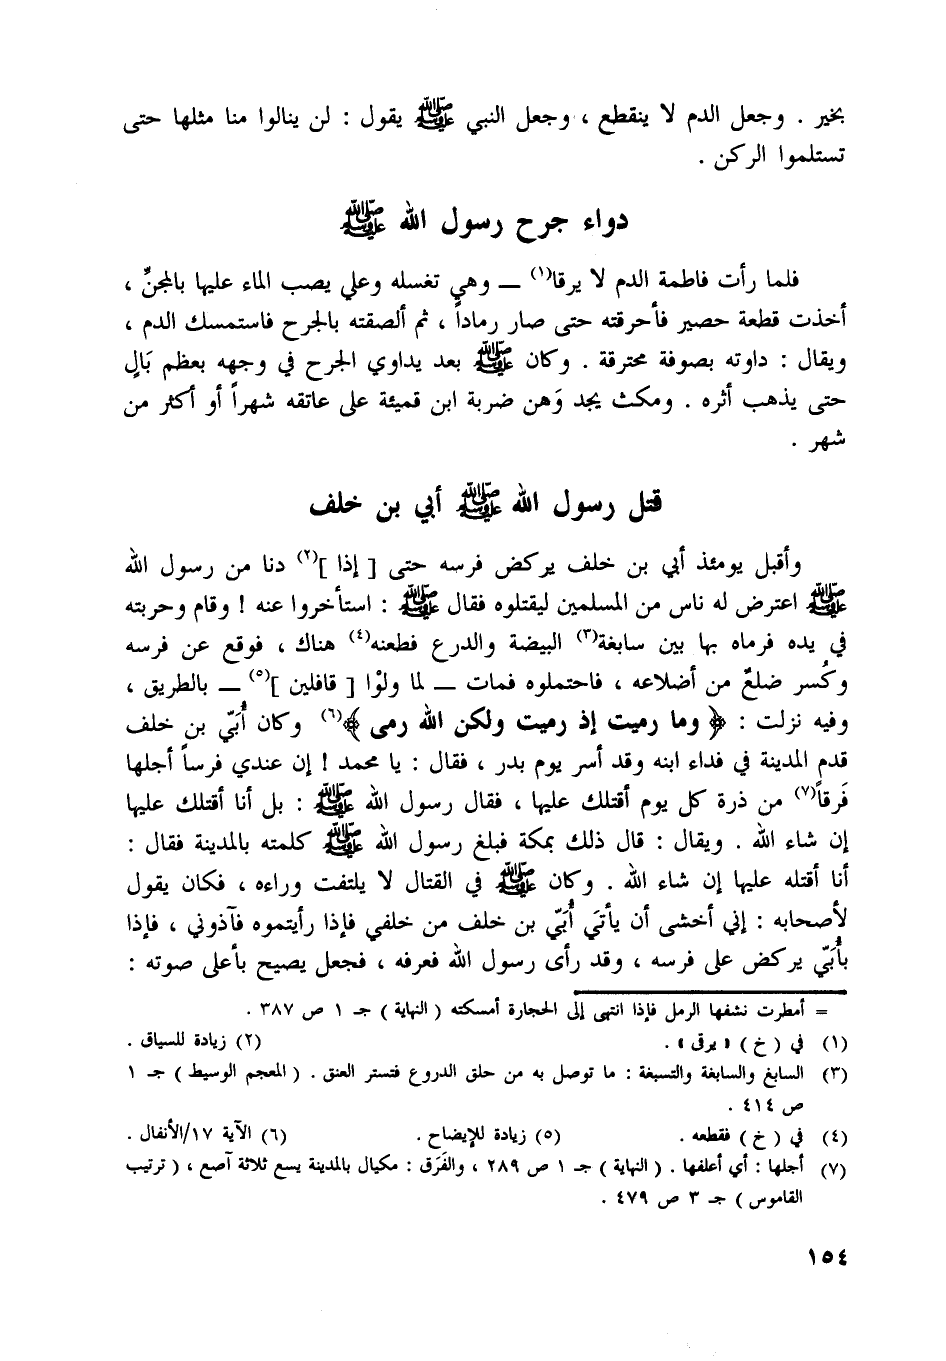 بخير . وجعل الدم لا ينقطع ، وجعل النبي ﷺ يقول : لن ينالوا منا مثلها حتى
تستلموا الركن .
دواء جرح رسول الله ﷺ
فلما رأت فاطمة الدم لا يرقا(١) ـ وهي تغسله وعلي يصب الماء عليها بالمجنِّ ،
أخذت قطعة حصير فأحرقته حتى صار رماداً ، ثم ألصقته بالجرح فاستمسك الدم ،
ويقال : داوته بصوفة محترقة . وكان ﷺ بعد يداوي الجرح في وجهه بعظم بَالٍ
حتى يذهب أثره . ومكث يجد وَهن ضربة ابن قميئة على عاتقه شهراً أو أكثر من
شهر .
قتل رسول الله ﷺ أبي بن خلف
وأقبل يومئذ أبي بن خلف يركض فرسه حتى [ إذا ](٢) دنا من رسول الله
ﷺ اعترض له ناس من المسلمين ليقتلوه فقال ﷺ : استأخروا عنه ! وقام وحربته
في يده فرماه بها بين سابغة(٣) البيضة والدرع فطعنه(٤) هناك ، فوقع عن فرسه
وكُسر ضلعٌ من أضلاعه ، فاحتملوه فمات ـ لما ولوْا [ قافلين ](٥) ـ بالطريق ،
وفيه نزلت : ﴿ وما رميت إذ رميت ولكن الله رمى ﴾(٦) وكان أُبَيّ بن خلف
قدم المدينة في فداء ابنه وقد أسر يوم بدر ، فقال : يا محمد ! إن عندي فرساً أجلها
فَرقاً(٧) من ذرة كل يوم أقتلك عليها ، فقال رسول الله ﷺ : بل أنا أقتلك عليها
إن شاء الله . ويقال : قال ذلك بمكة فبلغ رسول الله ﷺ كلمته بالمدينة فقال :
أنا أقتله عليها إن شاء الله . وكان ﷺ في القتال لا يلتفت وراءه ، فكان يقول
لأصحابه : إني أخشى أن يأتَي أُبَيّ بن خلف من خلفي فإذا رأيتموه فآذوني ، فإذا
بأُبَيّ يركض على فرسه ، وقد رأى رسول الله فعرفه ، فجعل يصيح بأعلى صوته :
= أمطرت نشفها الرمل فإذا انتهى إلى الحجارة أمسكته ( النهاية ) جـ ١ ص ٣٨٧ .
(١) في ( خ ) « يرق » . (٢) زيادة للسياق .
(٣) السابغ والسابغة والتسبغة : ما توصل به من حلق الدروع فتستر العنق . ( المعجم الوسيط ) جـ ١
ص ٤١٤ .
(٤) في ( خ ) فقطعه . (٥) زيادة للإيضاح . (٦) الآية ١٧/الأنفال .
(٧) أجلها : أي أعلفها . ( النهاية ) جـ ١ ص ٢٨٩ ، والفَرَق : مكيال بالمدينة يسع ثلاثة آصع ، ( ترتيب
القاموس ) جـ ٣ ص ٤٧٩ .
١٥٤